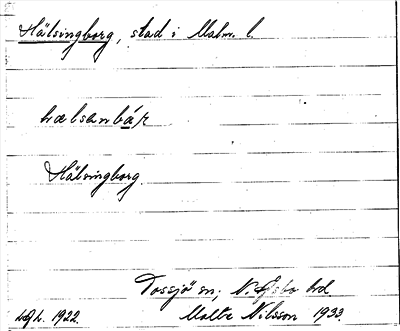 Hälsingborg, stad i Malm. l.
hælsenbár
Hälsingborg.
Tossjö sn; N. Åsbo hd
1922.
Malte Nilsson 1933.